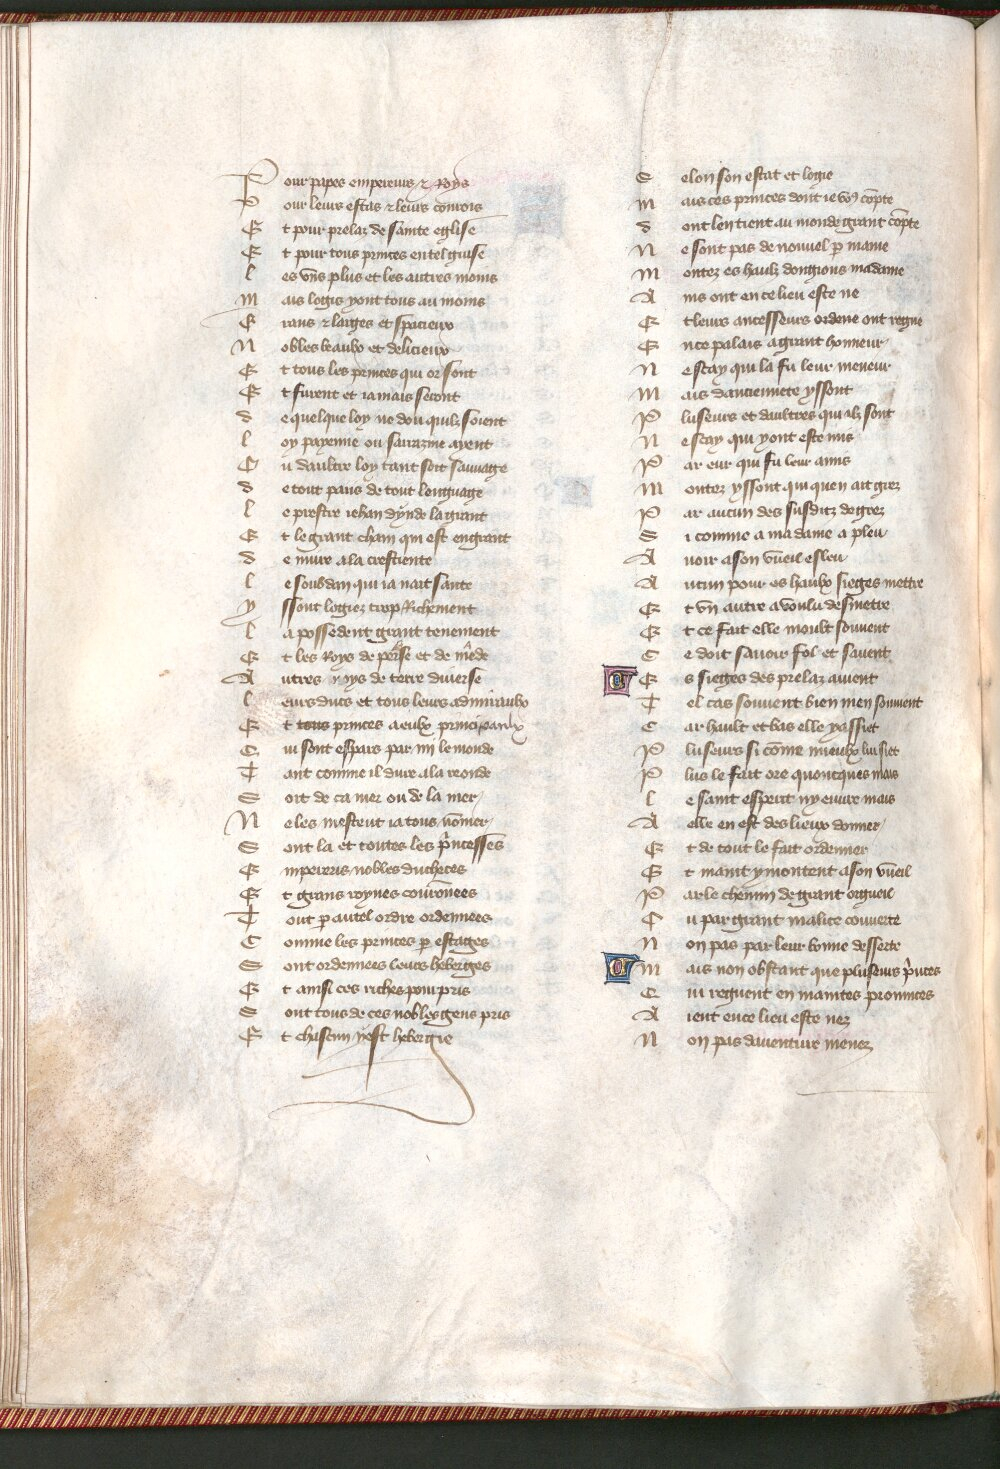 Pour papes empereurs ⁊ Roys
Pour leurs estas ⁊ leurs conrois
Et pour prelaz de sainte eglise
Et pour tous princes en tel guise
les vns plus et les autres moins
mais logis y ont tous au moins
Grans ⁊ larges et spacieux
Nobles beaulx et delicieux
Et tous les princes qui or sont
Et furent et iamais seront
de quelque loy ne dou quilz soient
loy payenne ou sarrazine ayent
Ou daultre loy tant soit sauuage
de tout pais de tout lenguage
le prestre iehan dynde la grant
Et le grant cham qui est engrant
de nuire a la crestiente
le soubdan qui ia nait sante
yssont logiez trop Richement
la possedent grant tenement
Et les Roys de perse et de mede
Autres roys de terre diuerse
leurs ducs et tous leurs admiraulx
Et tous princes a eulx principaulx
Qui sont espars par mi le monde
Tant comme il dure a la reonde
Soit de ca mer ou de la mer
Ne les mestent ia tous nom̄er
Sont la et toutes les princesses
Empereris nobles ducheces
Et grans roynes couronnees
Tout ꝑ autel ordre ordennees
Comme les princes ꝑ estages
Sont ordennees leurs heberges
Et ainsi ces riches pourpris
Sont tous de ces nobles gens pris
Et chascun y est hebergie
Selon son estat et logie
mais ces princes dont ie vo9 cōpte
dont len tient au monde grant cōpte
ne sont pas de nouuel ꝑ mame
montez es haulz dongions madame
Ains ont en ce lieu este ne
Et leurs ancesseurs ordene ont regne
En ce palais a grant honneur
ne scay qui la fu leur meneur
Mais danciennete y ssont
Pluseurs et daultres qui alz sont
Ne scay qui y ont este mis
Par eur qui fu leur amis
Montez y ssont qui quen ait grez
Par aucun des susditz degrez
Si comme a madame a pleu
Auoir a son vueil esleu
Aucun pour es haulx sieges mettre
Et vn autre a voulu desmettre
Et ce fait elle moult souuent
Ce doit sauoir fol et sauent
Es sieges des prelaz auient
Tel cas souuent bien men souuient
Car hault et bas elle y assiet
Pluseurs si cōme mieulx lui siet
Plus le fait ore quoncques mais
le saint esperit ny euure mais
Aelle en est des lieux donner
Et de tout le fait ordenner
Et maint y montent a son vueil
Par le chemin de grant orgueil
Ou par grant malice couuerte
Non pas par leur bonne desserte
Mais non obstant que pluseurs princes
Qui regnent en maintes prouinces
Aient en ce lieu este nez
Non pas dauenture menez